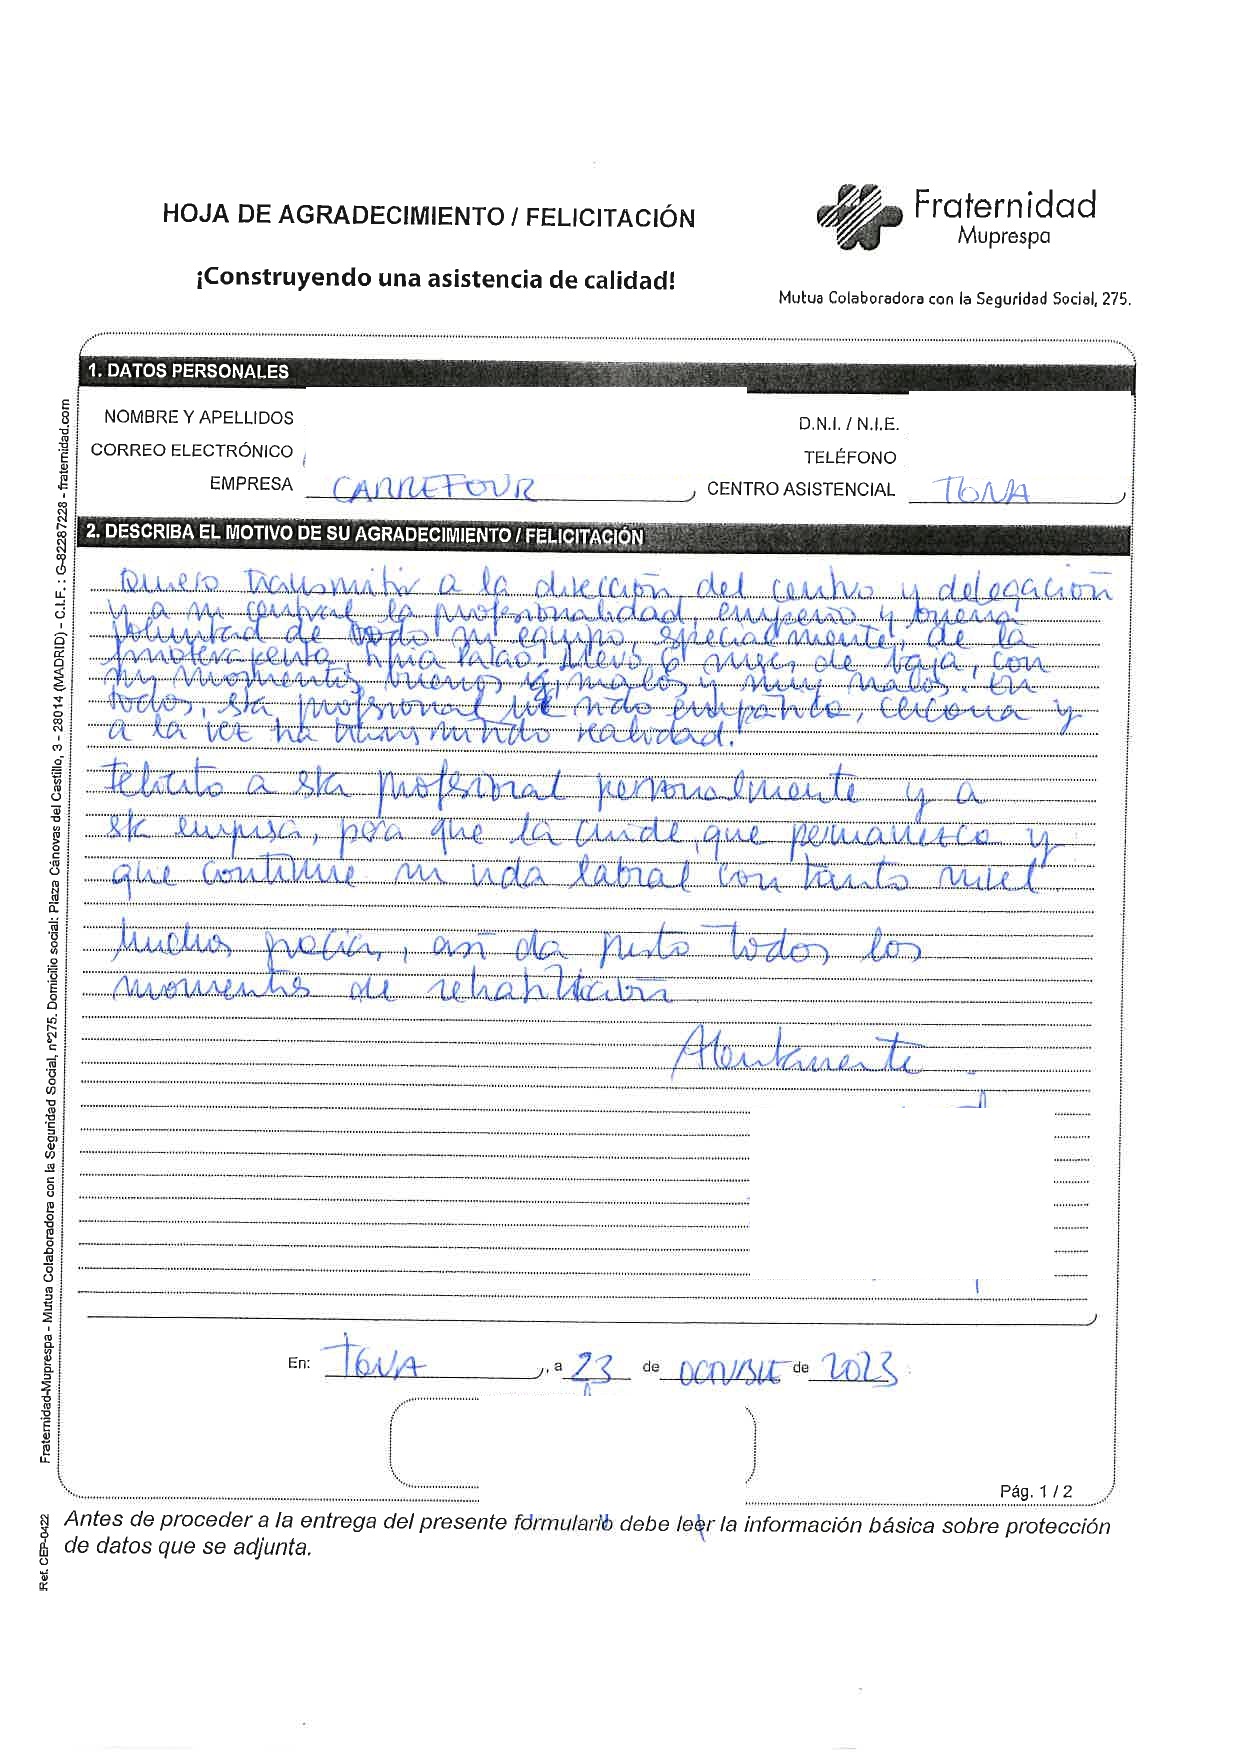 HOJA DE AGRADECIMIENTO / FELICITACIÓN
Fraternidad
Muprespa
¡Construyendo una asistencia de calidad!
Mutua Colaboradora con la Seguridad Social, 275.
1. DATOS PERSONALES
NOMBRE Y APELLIDOS
D.N.I. / N.I.E.
CORREO ELECTRÓNICO
TELÉFONO
EMPRESA CARREFOUR
CENTRO ASISTENCIAL TONA
2. DESCRIBA EL MOTIVO DE SU AGRADECIMIENTO / FELICITACIÓN
Quiero transmitir a la dirección del centro y delegación
y a mi central la profesionalidad, empeño y buena
voluntad de todo su equipo, especialmente, de la
fisioterapeuta, . Llevo 6 meses de baja, con
mis momentos buenos y malos y muy malos. En
todos, esta profesional ha sido empática, cercana y
a la vez ha transmitido realidad.
Felicito a esta profesional personalmente y a
esta empresa, para que la cuide, que permanezca y
que continue su vida laboral con tanto nivel
Muchas gracias, así da gusto todos los
momentos de rehabilitación
Atentamente
En: TONA, a 23 de OCTUBRE de 2023
Pág. 1 / 2
Antes de proceder a la entrega del presente formulario debe leer la información básica sobre protección
de datos que se adjunta.
Fraternidad-Muprespa - Mutua Colaboradora con la Seguridad Social, nº275. Domicilio social: Plaza Cánovas del Castillo, 3 - 28014 (MADRID) - C.I.F. : G-82287228 - fraternidad.com
Ref. CEP-0422